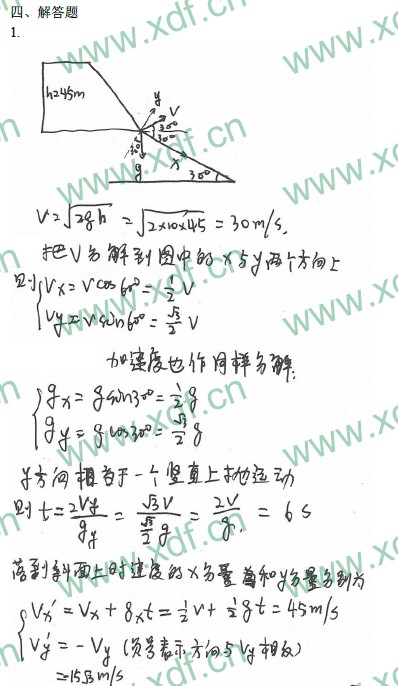 四、解答题
1.
h=45m
y
V
30°
30°
30°
g
x
30°
V=√2gh =√2×10×45 =30m/s.
把V分解到图中的x与y两个方向上
则{Vx=vcos60°=½V
Vy=vsin60°=√3/2 V
加速度也作同样分解.
{gx=gsin30°=½g
gy=gcos30°=√3/2 g
y方向相当于一个竖直上抛运动
则t=2Vy/gy=√3V/(√3/2 g)=2V/g=6s
落到斜面上时速度的x分量和y分量分别为
{Vx'=Vx+gxt=½v+½gt=45m/s
Vy'=-Vy (负号表示方向与Vy相反)
=15√3m/s
www.xdf.cn